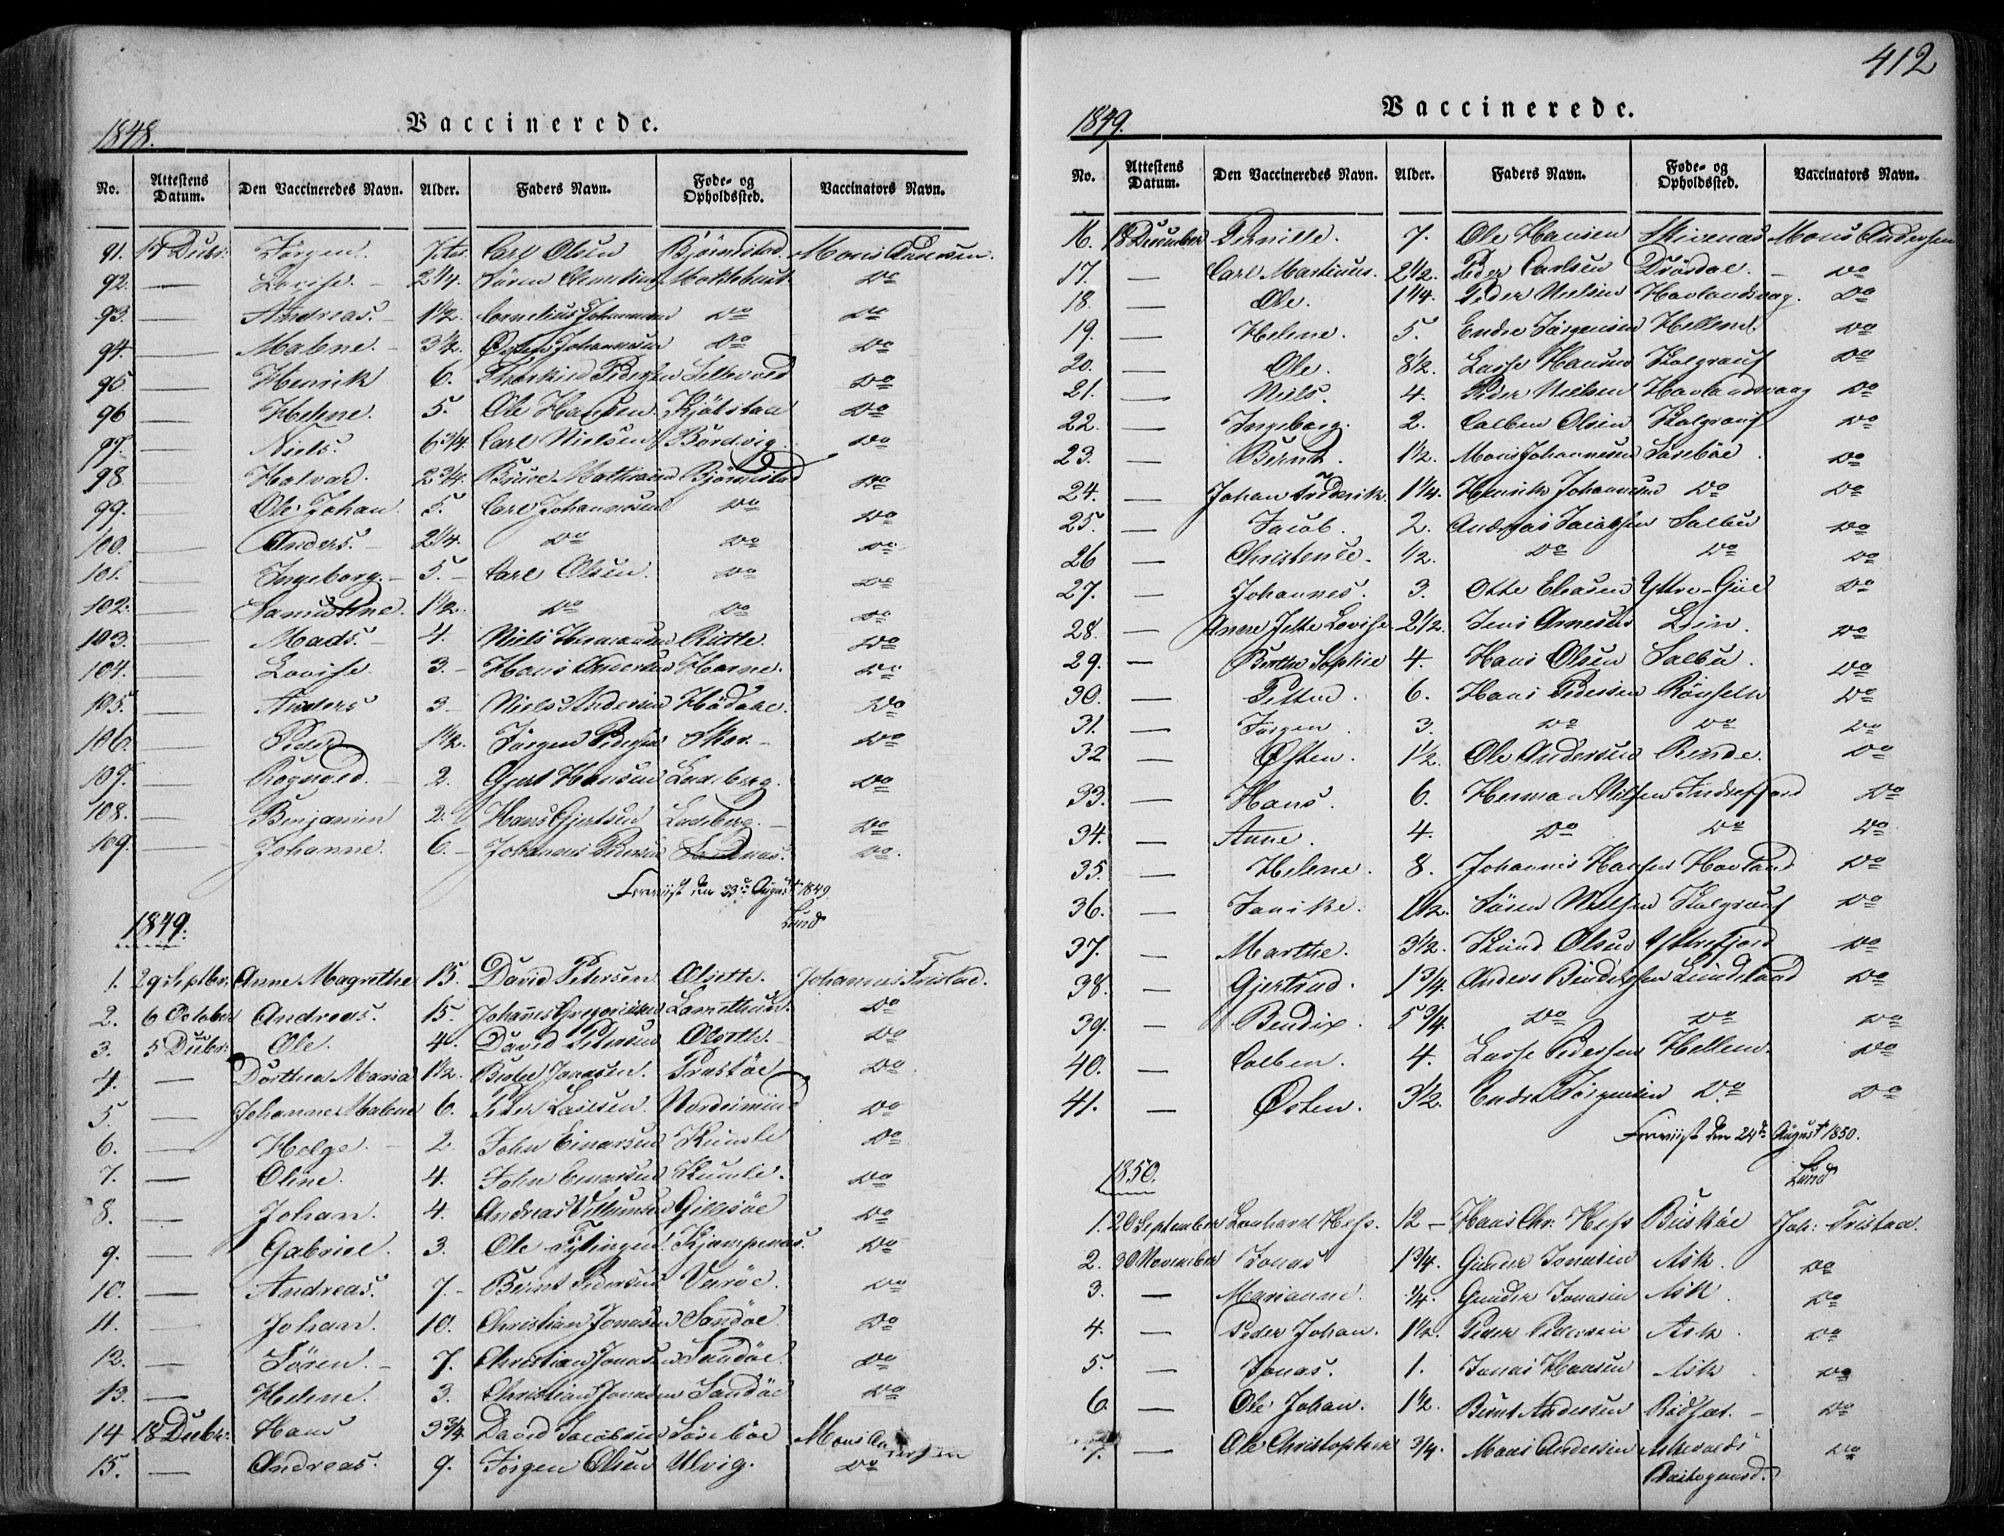 412
1848.
Vaccinerede.
No. Attestens Datum. Den Vaccineredes Navn. Alder. Faders Navn. Føde- og Opholdssted. Vaccinators Navn.
91. 17 Decbr: Jørgen. Carl Olsen Bjørnestad Mons Andersen.
92. — Lovise. 2 1/4 Søren Moklebust Do
93. — Andreas. 1 1/2. Cornelius Johannesen Do Do
94. — Malene. 3 1/2. Østen Johannesen Do Do
95 — Henrik 6. Thorkild Pedersen Do
96 — Helene 5. Ole Hansen Do
97. — Niels. 6 3/4 Carl Nielsen Do
98. — Halvar. 2 3/4. Mathiesen Bjørnestad Do
99. — Ole Johan 5. Carl Johannesen Do Do
100. — Anders. 2 1/4. Do Do Do
101. — Ingeborg. 5. Carl Olsen. Do Do
102. — 1 1/2. Do Do Do
103 — Mads. 4. Niels Hermansen Rutle. Do
104. — Lovise. 3. Hans Andersen Do
105. — Anders 3. Niels Andersen Do
106. — Peder 1 1/2. Jørgen Pedersen Skor. Do
107. — Rognvald. 2. Gjert Hansen Ladeberg. Do
108. — Benjamin 2. Hans Gjertsen Ladeberg. Do
109. — Johanne. 6. Johannes Pedersen Do.
Foreviist den 23de August 1849.
Lund
1849.
1. 29 Septbr. Anne Magrethe 15. David Petersen Olseth. Johannes Tristad.
2. 6 October Andreas. 15. Johannes Gregoriussen Do
3. 5 Decbr: Ole. 4. David Petersen Olseth. Do
4. — Dorthea Maria 1 1/2. Jonassen. Do
5. — Johanne Malene 6. Peder Larsen. Do
6. — Helge 2. John Einarsen Kumle Do
7. — Oline. 4. John Einarsen Kumle. Do
8. — Johan. 4. Andreas Do
9. — Gabriel. 3. Ole Kjempenæs. Do
10. — Andreas. 7. Bernt Pedersen Varøe. Do
11. — Johan. 10. Christian Jonasen Sandøe. Do
12. — Søren. 7. Christian Jonasen Sandøe. Do
13. — Helene. 3. Christian Jonasen Sandøe Do
14 18 Decbr: Hans 3 3/4 David Jacobsen Sørebøe Mons Andersen
15. — Andreas. 9. Jørgen Olsen Ulvig. Do
1849.
Vaccinerede.
No. Attestens Datum. Den Vaccineredes Navn. Alder. Faders Navn. Føde- og Opholdssted. Vaccinators Navn.
16. 18 December Pernille. 7. Ole Hansen Skivenæs Mons Andersen
17. — Carl Martinus. 2 1/2. Peder Carlsen Drøsdal. Do
18. — Ole. 1 1/4. Peder Nielsen Havlandsvaag. Do
19. — Helene. 5. Endre Jørgensen Hellene. Do
20. — Ole. 8 1/2. Lasse Hansen Kalgraf Do
21. — Niels. 4. Peder Nielsen Havlandsvaag Do
22. — Ingeborg. 2. Colben Olsen Kalgraf Do
23. — Bernt. 1 1/2. Mons Johannesen Sørebøe. Do
24. — Johan Frederik. 1 1/4. Henrik Johannesen Do Do
25. — Jacob. 2. Andreas Jacobsen Salbu Do
26 — Christence. 1/2. Do Do Do
27. — Johannes. 3. Otte Eliasen Yttre-Güe Do
28. — Anne Jette Lovise 2 1/2. Jens Arnesen Do
29. — Berthe Sophie 4. Hans Olsen Salbu. Do
30. — Petter. 6. Hans Pedersen Do
31. — Jørgen 3. Do Do Do
32 — Østen. 1 1/2. Ole Andersen Rende. Do
33. — Hans. 6. Herman Nilsen Indrefjord Do
34. — Anne. 4. Do Do Do
35. — Helene. 8. Johannes Hansen Havland Do
36. — Janike. 1 1/2. Søren Nielsen Kalgraf Do
37. — Marthe. 3 1/2. Knud Olsen Yttrefjord Do
38. — Gjertrud. 1 3/4 Anders Bendixsen Do
39. — Bendix. 5 3/4. Do Do Do
40. — Colben. 4. Lasse Pedersen Hellene. Do
41. — Østen. 3 1/2. Endre Jørgensen Do. Do
Foreviist den 24de August 1850.
Lund
1850.
1. 20 September Leonhard Hess. 12 — Hans Chr. Hess Buskøe Joh: Tristad.
2. 30 November Jonas 1 3/4. Gunder Jonasen Ask. Do
3. — Marianne. 3/4. Gunder Jonasen Ask. Do
4. — Peder Johan. 1 1/2. Peder Pedersen Ask. Do
5. — Jonas. 1. Jonas Hansen Ask. Do
6. — Ole Johan. 1 1/2. Bernt Andersen Do
7. — Ole Christopher 3/4. Mons Andersen Askevolds Præstegaard. Do